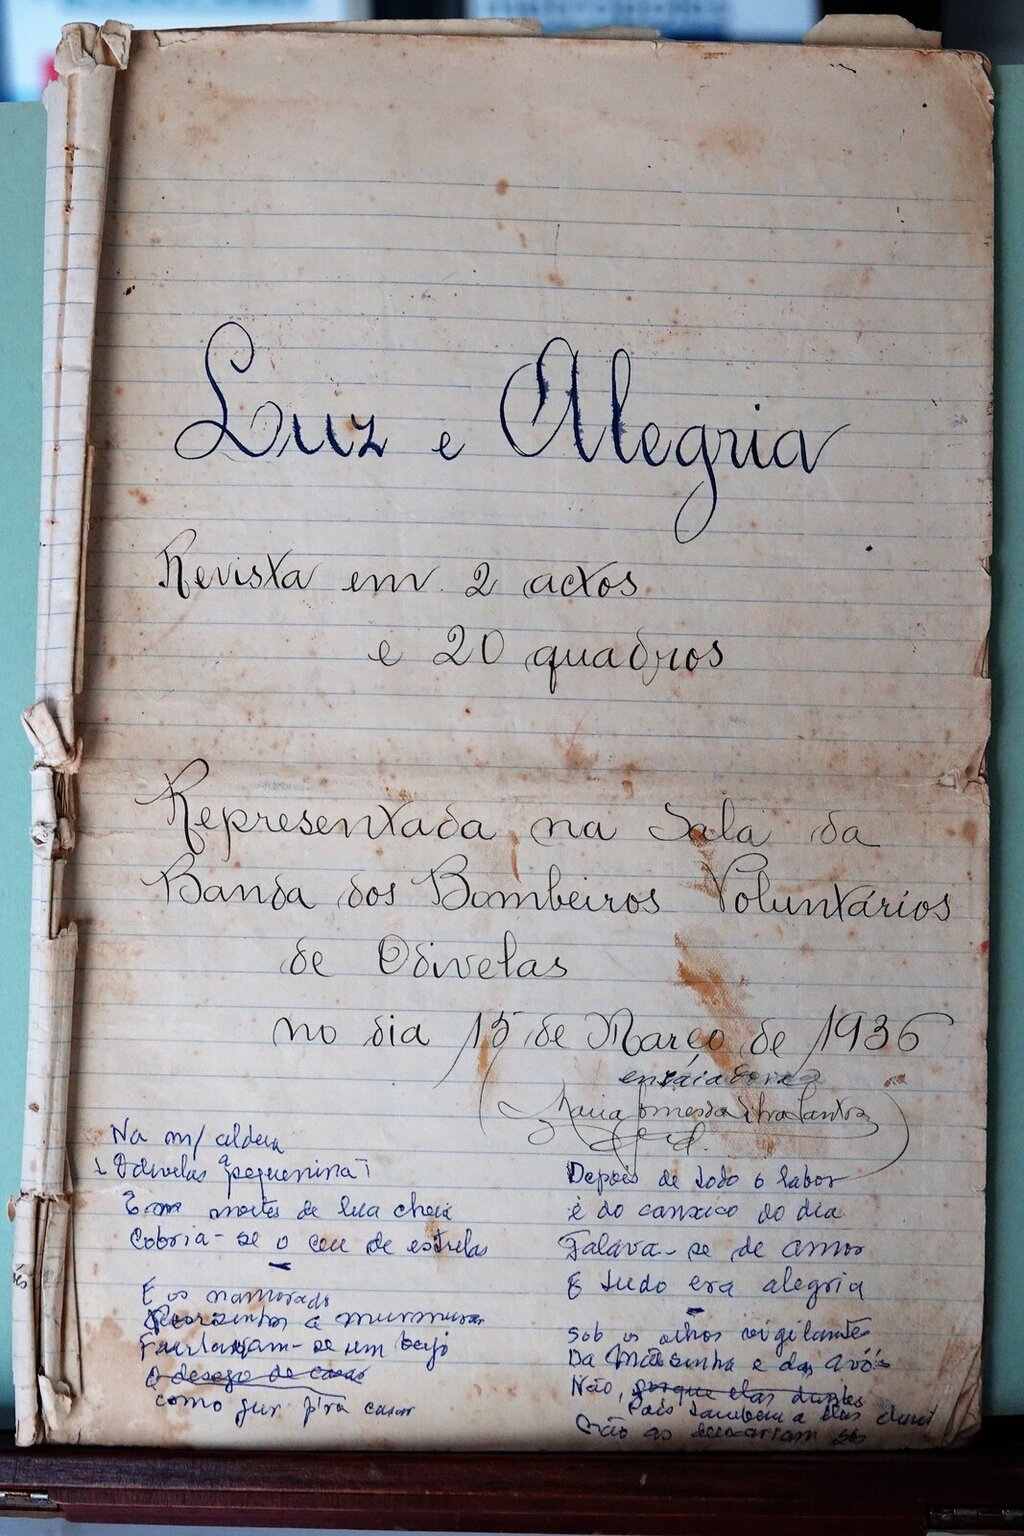 Luz e Alegria
Revista em 2 actos
e 20 quadros
Representada na Sala da
Banda dos Bombeiros Voluntários
de Odivelas
no dia 15 de Março de 1936
ensaiadora
Maria
Na m/ aldeia
Odivelas pequenina
Em noites de lua cheia
Cobria-se o ceu de estrelas
E os namorado
a murmurar
um beijo
o desejo de casar
como jur p'ra casar
Depois de todo o labor
e do cansaço do dia
Falava-se de amor
E tudo era alegria
Sob os olhos vigilante
Da Mãesinha e das avós
Não, porque elas
Pois tambem a elas
Não as